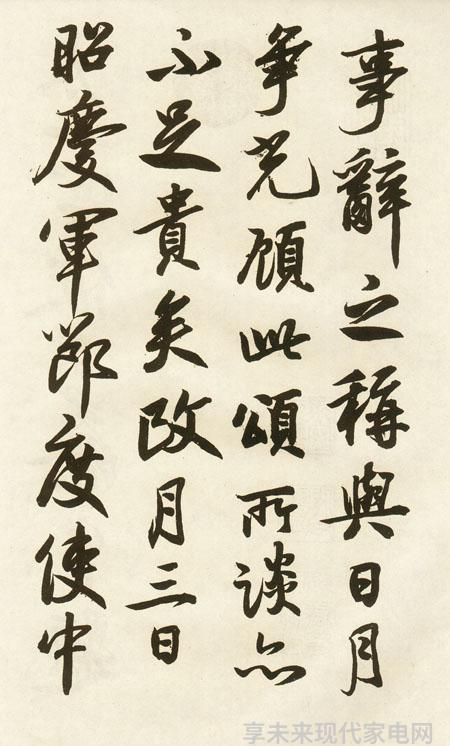 事辭之稱與日月
爭光顧此頌所談亦
不足貴矣改月三日
昭慶軍節度使中
享未来现代家电网